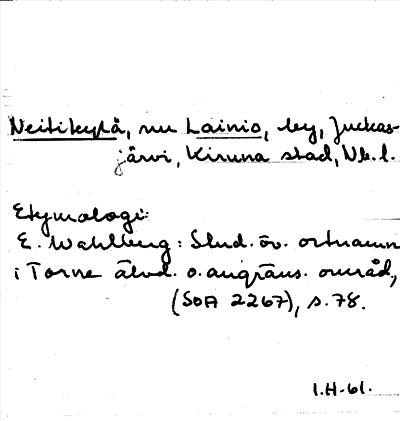 Neitikylä, nu Lainio, by, Juckas-
järvi, Kiruna stad, Nb. l.
Etymologi:
E. Wahlberg: Stud. öv. ortnamn
i Torne älvd. o. angräns. områd,
(SOA 2267), s. 78.
I.H-61.